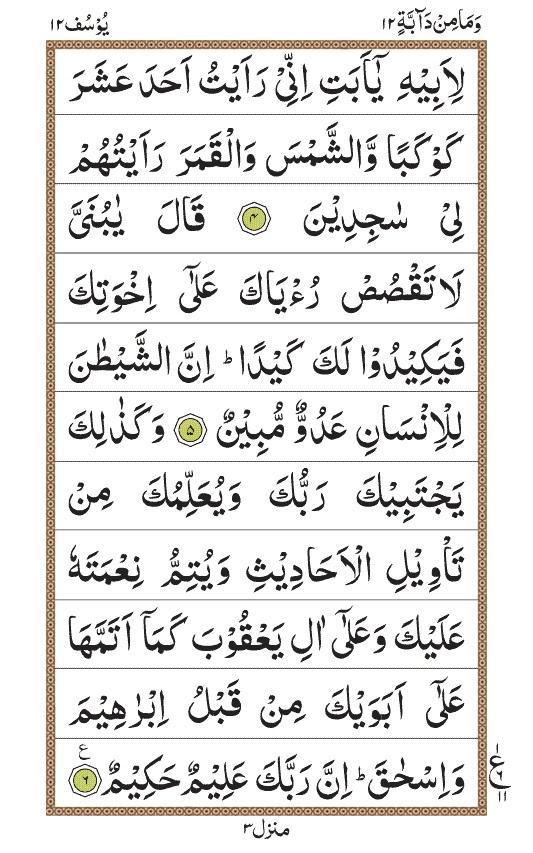 وَمَا مِنْ دَآبَّةٍ ١٢ يُوْسُف ١٢
لِاَبِيْهِ يٰۤاَبَتِ اِنِّىْ رَاَيْتُ اَحَدَ عَشَرَ
كَوْكَبًا وَّالشَّمْسَ وَالْقَمَرَ رَاَيْتُهُمْ
لِىْ سٰجِدِيْنَ ۴ قَالَ يٰبُنَىَّ
لَا تَقْصُصْ رُءْيَاكَ عَلٰٓى اِخْوَتِكَ
فَيَكِيْدُوْا لَكَ كَيْدًا ؕ اِنَّ الشَّيْطٰنَ
لِلْاِنْسَانِ عَدُوٌّ مُّبِيْنٌ ۵ وَكَذٰلِكَ
يَجْتَبِيْكَ رَبُّكَ وَيُعَلِّمُكَ مِنْ
تَاْوِيْلِ الْاَحَادِيْثِ وَيُتِمُّ نِعْمَتَهٗ
عَلَيْكَ وَعَلٰٓى اٰلِ يَعْقُوْبَ كَمَاۤ اَتَمَّهَا
عَلٰٓى اَبَوَيْكَ مِنْ قَبْلُ اِبْرٰهِيْمَ
وَاِسْحٰقَ ؕ اِنَّ رَبَّكَ عَلِيْمٌ حَكِيْمٌ ۶ ع
ع ۶ ۱۱
منزل ۳